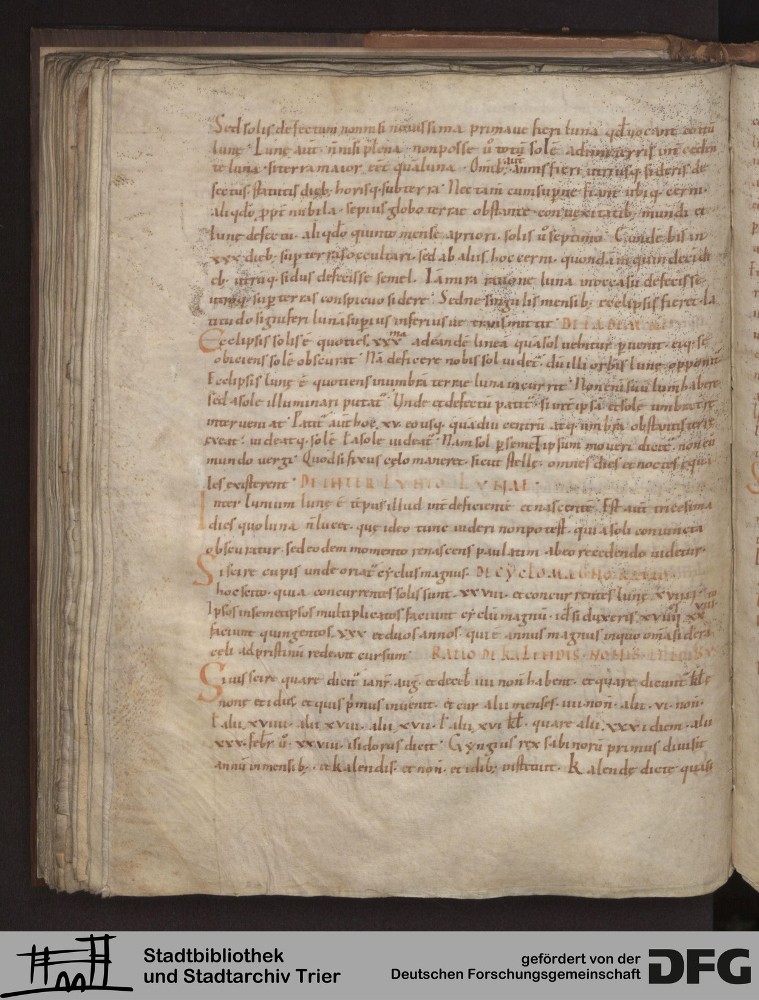 Sed solis defectum non nisi nouissima primaue fieri luna qđ uocant coitū
lunę · Lunę aut̄ n̄ nisi plena · non posse ū totū solē adimi terris int̄ceden
te luna · si terra maior eēt quā luna · Omib; aut̄ annis fieri utriusq; sideris de
fectus statutis dieb; horisq; sub terra · Nec tam̄ cum supne fiant ubiq; cerni ·
aliqđo ppt nubila · sepius globo terrae obstante conuexitatib; mundi
lunę defectū · aliqđo quinto mense a priori · solis ū septimo · Eundē bis in
xxx dieb; sup terras occultari · sed ab aliis hoc cerni · quondā in quindeci di
eb; utrūq; sidus defecisse semel · Iam ira ratione luna in occasu defecisse
utroq; sup terras conspicuo sidere · Sed ne singulis mensib; eclipsis fieret la
titudo signiferi luna supius inferius ue transmittit
Ecclipsis solis ē quoties xxx ma ad eandē lineā qua sol uehitur puenit · eiq; se
obiciens solē obscurat · Nā deficere nobis sol uidet̄ · dū illi orbis lunę opponit̄
Ecclipsis lunę ē quotiens in umbrā terrae luna incurrit · Non enī suū lum̄ habere
sed a sole illuminari putat̄ · Unde et defectū patit̄ · si int̄ ipsā et solē umbra t̄rę
interueniat · Patit̄ aut̄ hoc · xv · eo usq; quādiu centrū atq; umbrā obstantis terrę
exeat · uideatq; solē ł a sole uideat̄ · Nam sol p semet̄ipsum moueri dicit̄ · non cū
mundo uergi · Quod si fixus cęlo maneret · sicut stellę · omnes dies et noctes equa
les existerent · DE INTERLVNIO LVNAE ·
Inter lunium lunę ē tēpus illud int̄ deficientē et nascentē · Est aut̄ tricesima
dies quo luna n̄ lucet · quę ideo tunc uideri non potest · quia soli coniuncta
obscuratur · sed eodem momento renascens paulatim ab eo recedendo uidetur ·
Si scire cupis unde oriat̄ cyclus magnus · DE CYCLO MAGNO RATIO
hoc scito · quia concurrentes solis sunt · xxviii · et concurrentes lunę xviiii
Ipsos in semetipsos multiplicatos faciunt cyclū magnū · id si duxeris xviiii xxviii
faciunt quingentos xxx et duos annos · qui ē annus magnus in quo om̄ia sidera
celi ad pristinū redeant cursum · RATIO DE KALENDIS · NONIS · ET IDIBVS
Si uis scire quare dicit̄ ianr̄ · aug̅ · et deceb̄ · iiii non̄ habent · et quare dicunt̄ kł&
nonę et idus · et quis p̄mus inuenit · et cur alii menses iiii non̄ · alii · vi · non̄ ·
ł alii xviiii · alii xviii · alii xvii · ł alii xvi kł · quare alii xxxi diem · alii
xxx · febr̄ ū · xxviii · isidorus dicit · Cyngius rex sabinorū primus diuisit
annū in mensib; · et kalendis · et non̄ · et idib; instituit · Kalendę dictę quasi
Stadtbibliothek
und Stadtarchiv Trier
gefördert von der
Deutschen Forschungsgemeinschaft
DFG